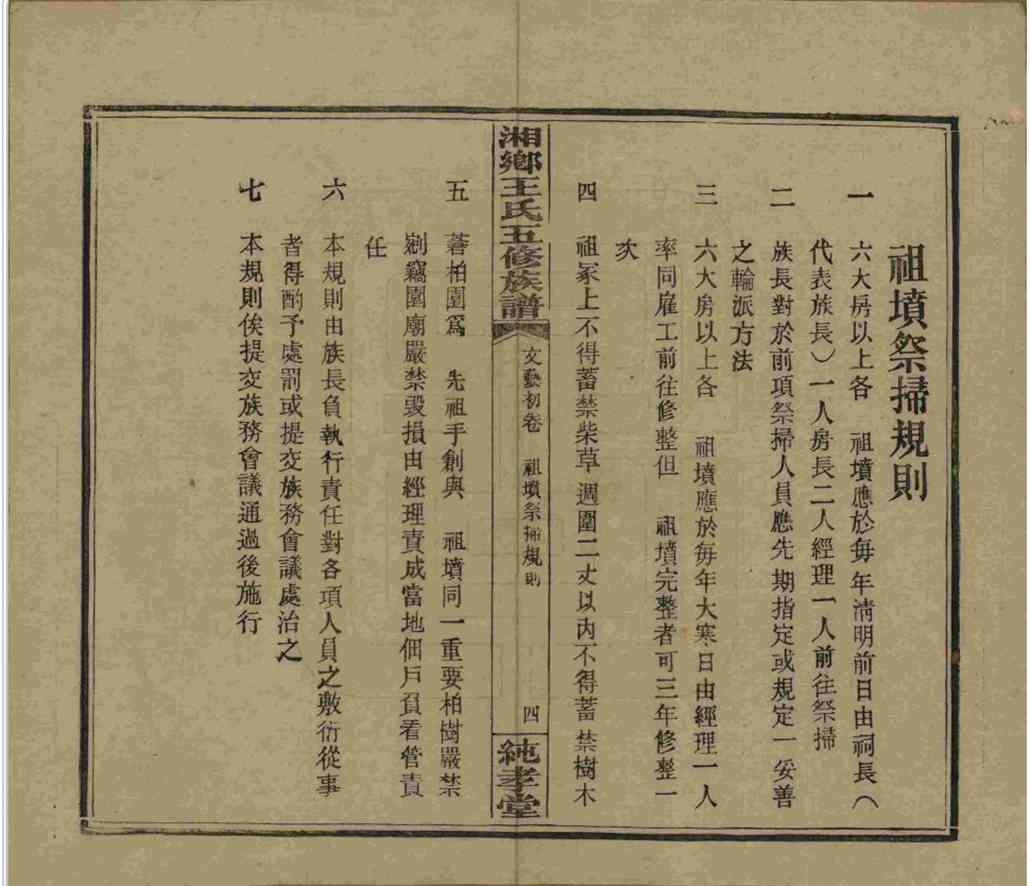 祖墳祭掃規則
一　六大房以上各　祖墳應於每年清明前日由祠長（
代表族長）一人房長二人經理一人前往祭掃
二　族長對於前項祭掃人員應先期指定或規定一妥善
之輪派方法
三　六大房以上各　祖墳應於每年大寒日由經理一人
率同雇工前往修整但　祖墳完整者可三年修整一
次
四　祖冢上不得蓄禁柴草週圍二丈以內不得蓄禁樹木
湘鄉王氏五修族譜
文藝初卷　祖墳祭掃規則　四
純孝堂
五　蒼柏園爲　先祖手創與　祖墳同一重要柏樹嚴禁
剜竊園廟嚴禁毀損由經理責成當地佃戶負看管責
任
六　本規則由族長負執行責任對各項人員之敷衍從事
者得酌予處罰或提交族務會議處治之
七　本規則俟提交族務會議通過後施行